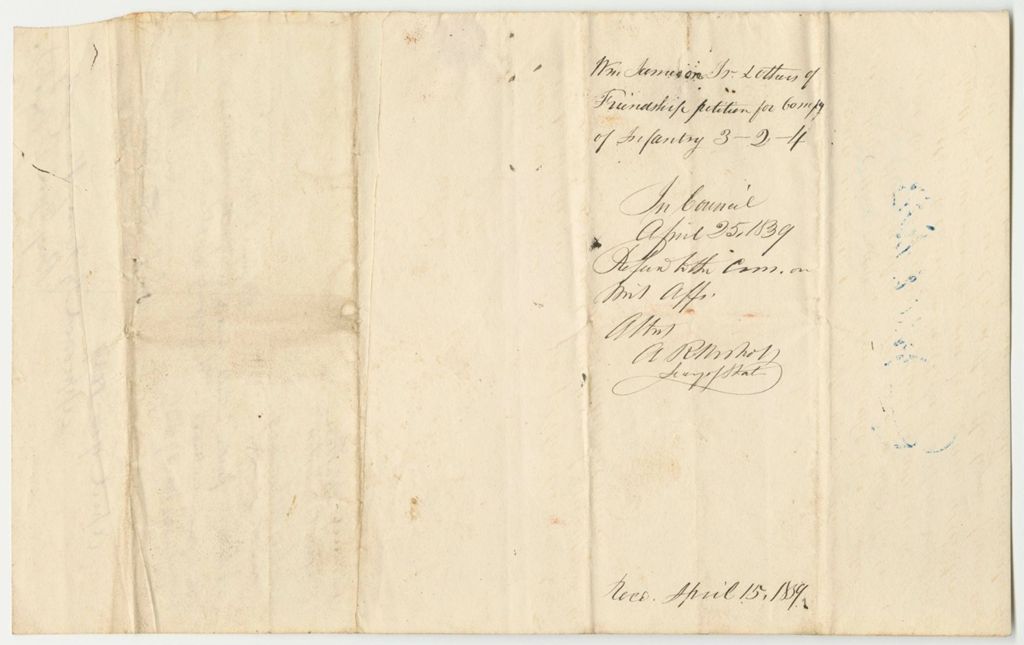 Wm Jameson Jr. & others of
Friendship petition for Compy
of Infantry 3-2-4
In Council
April 25, 1839
Referd to the Com. on
Mil Affs.
Attest
A R Nichols
Secy of State
Recd. April 15, 1839.